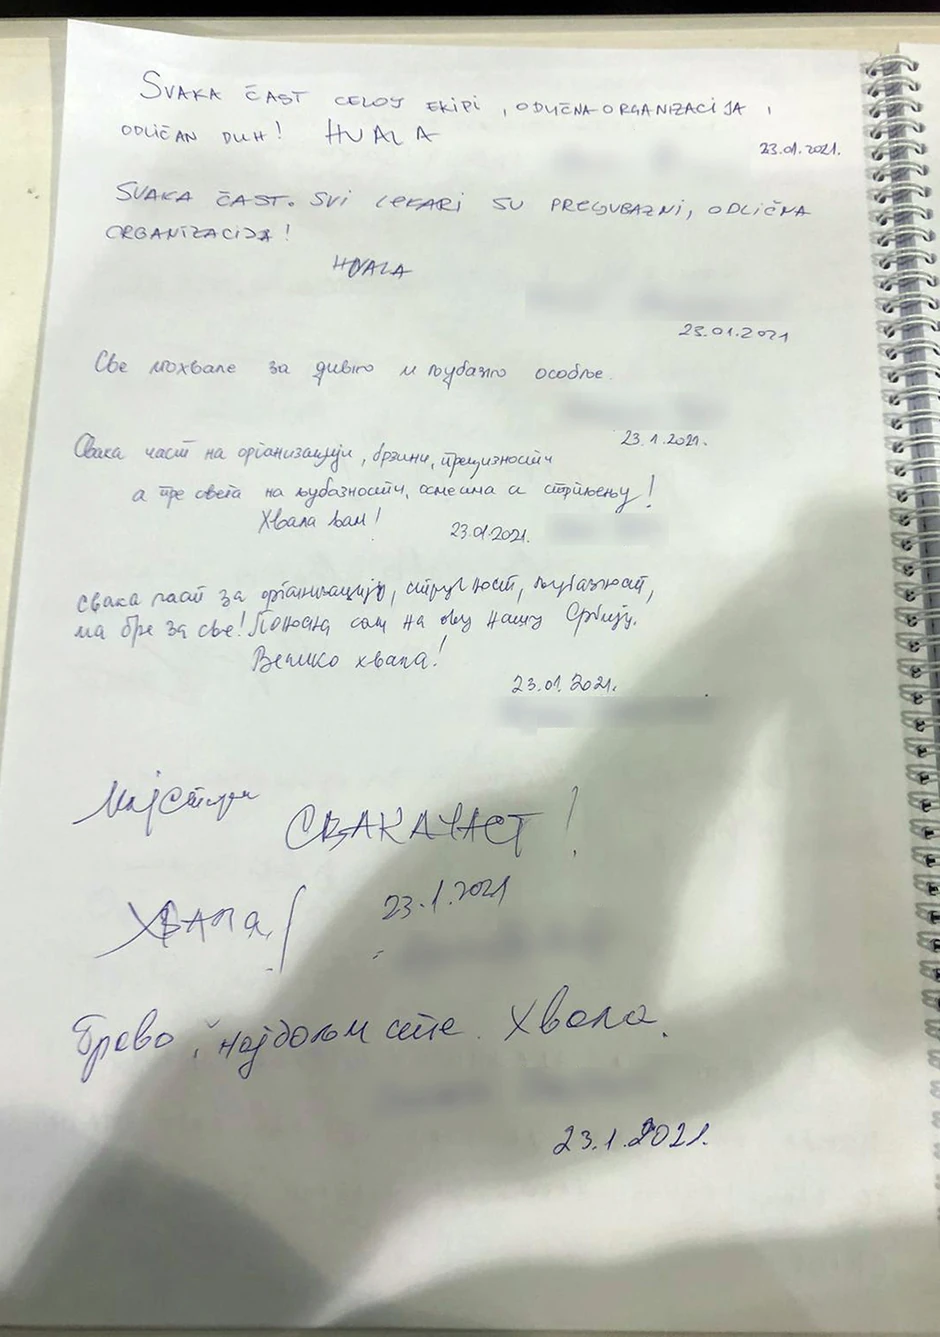 SVAKA ČAST CELOJ EKIPI, ODLIČNA ORGANIZACIJA,
ODLIČAN DUH! HVALA
23.01.2021.
SVAKA ČAST. SVI LEKARI SU PREGUBAZNI, ODLIČNA
ORGANIZACIJA!
HVALA
23.01.2021
Све похвале за дивно и љубазно особље.
23.1.2021.
Свака част на организацији, брзини, прецизности
а пре свега на љубазности, осмесима и стрпљењу!
Хвала вам!
23.01.2021.
Свака част за организацију, стручност, љубазност,
ма бре за све! Поносна сам на ову нашу Србију.
Велико хвала!
23.01.2021.
Мајстори
СВАКА ЧАСТ!
Хвала!
23.1.2021
Браво, најбољи сте. Хвала.
23.1.2021.